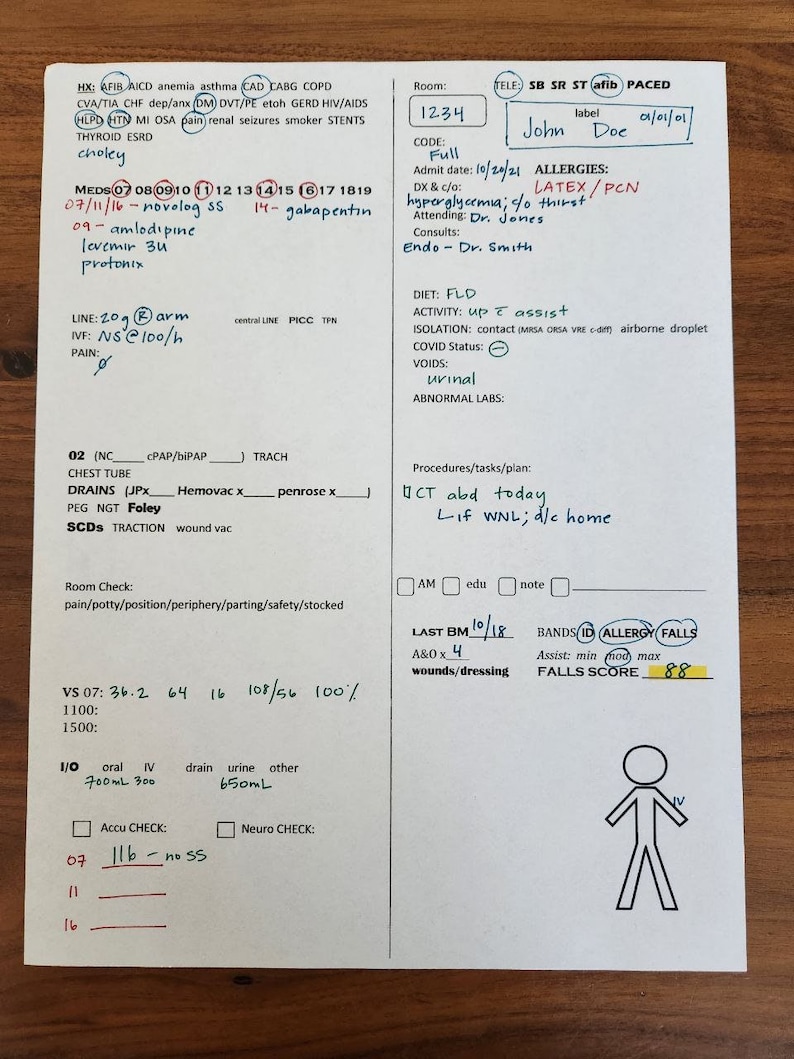 HX: AFIB AICD anemia asthma CAD CABG COPD
CVA/TIA CHF dep/anx DM DVT/PE etoh GERD HIV/AIDS
HLPD HTN MI OSA pain renal seizures smoker STENTS
THYROID ESRD
choley
MEDS 07 08 09 10 11 12 13 14 15 16 17 18 19
07/11/16 - novolog SS 14- gabapentin
09 - amlodipine
levemir 3u
protonix
LINE: 20g R arm central LINE PICC TPN
IVF: NS @ 100/h
PAIN:
ø
02 (NC_____ cPAP/biPAP _____) TRACH
CHEST TUBE
DRAINS (JPx____ Hemovac x_____ penrose x_____)
PEG NGT Foley
SCDs TRACTION wound vac
Room Check:
pain/potty/position/periphery/parting/safety/stocked
VS 07: 36.2 64 16 108/56 100%
1100:
1500:
I/O oral IV drain urine other
700mL 300 650mL
Accu CHECK: Neuro CHECK:
07 116 - no SS
11
16
Room: TELE: SB SR ST afib PACED
1234
label 01/01/01
John Doe
CODE:
Full
Admit date: 10/20/21 ALLERGIES:
DX & c/o: LATEX/PCN
hyperglycemia; c/o thirst
Attending: Dr. Jones
Consults:
Endo - Dr. Smith
DIET: FLD
ACTIVITY: up c̄ assist
ISOLATION: contact (MRSA ORSA VRE c-diff) airborne droplet
COVID Status: ⊖
VOIDS:
urinal
ABNORMAL LABS:
Procedures/tasks/plan:
☐ CT abd today
↳ if WNL; d/c home
AM edu note
LAST BM 10/18 BANDS ID ALLERGY FALLS
A&O x 4 Assist: min mod max
wounds/dressing FALLS SCORE 88
IV